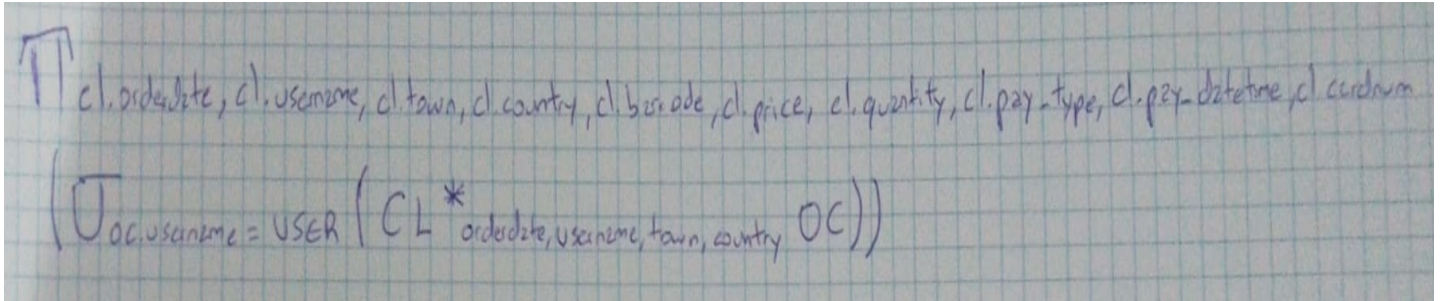 Π cl.orderdate, cl.username, cl.town, cl.country, cl.barcode, cl.price, cl.quantity, cl.pay_type, cl.pay_datetime, cl.cardnum
(σ oc.username = USER (CL * orderdate, username, town, country OC))